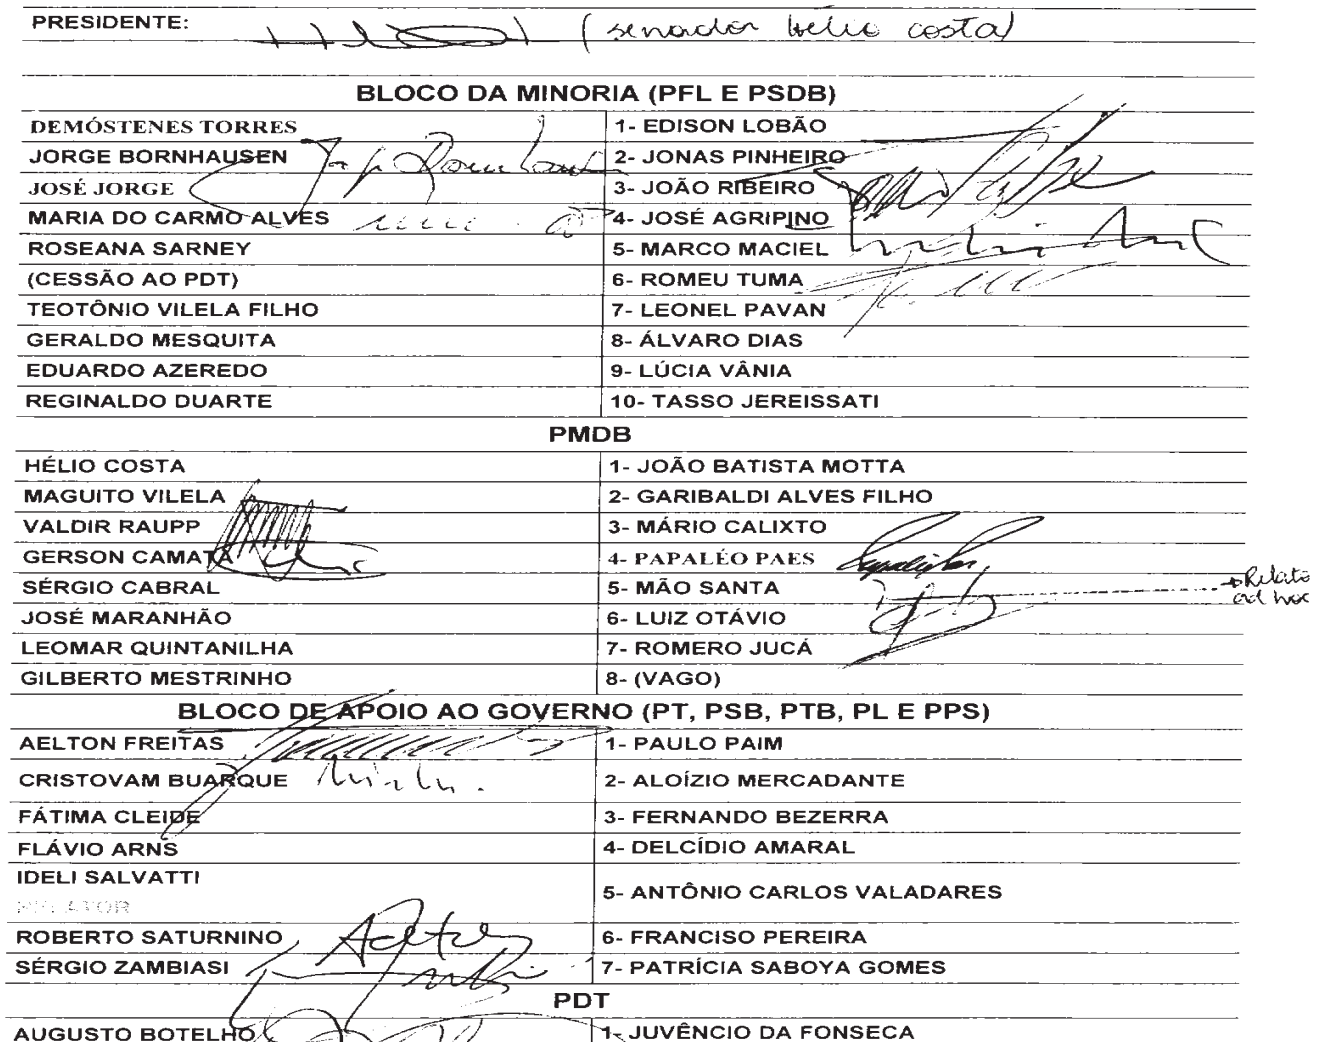 PRESIDENTE: (senador Hélio Costa)
BLOCO DA MINORIA (PFL E PSDB)
DEMÓSTENES TORRES 1- EDISON LOBÃO
JORGE BORNHAUSEN 2- JONAS PINHEIRO
JOSÉ JORGE 3- JOÃO RIBEIRO
MARIA DO CARMO ALVES 4- JOSÉ AGRIPINO
ROSEANA SARNEY 5- MARCO MACIEL
(CESSÃO AO PDT) 6- ROMEU TUMA
TEOTÔNIO VILELA FILHO 7- LEONEL PAVAN
GERALDO MESQUITA 8- ÁLVARO DIAS
EDUARDO AZEREDO 9- LÚCIA VÂNIA
REGINALDO DUARTE 10- TASSO JEREISSATI
PMDB
HÉLIO COSTA 1- JOÃO BATISTA MOTTA
MAGUITO VILELA 2- GARIBALDI ALVES FILHO
VALDIR RAUPP 3- MÁRIO CALIXTO
GERSON CAMATA 4- PAPALÉO PAES
SÉRGIO CABRAL 5- MÃO SANTA
Relato
ad hoc
JOSÉ MARANHÃO 6- LUIZ OTÁVIO
LEOMAR QUINTANILHA 7- ROMERO JUCÁ
GILBERTO MESTRINHO 8- (VAGO)
BLOCO DE APOIO AO GOVERNO (PT, PSB, PTB, PL E PPS)
AELTON FREITAS 1- PAULO PAIM
CRISTOVAM BUARQUE 2- ALOÍZIO MERCADANTE
FÁTIMA CLEIDE 3- FERNANDO BEZERRA
FLÁVIO ARNS 4- DELCÍDIO AMARAL
IDELI SALVATTI
RELATOR 5- ANTÔNIO CARLOS VALADARES
ROBERTO SATURNINO 6- FRANCISO PEREIRA
SÉRGIO ZAMBIASI 7- PATRÍCIA SABOYA GOMES
PDT
AUGUSTO BOTELHO 1- JUVÊNCIO DA FONSECA